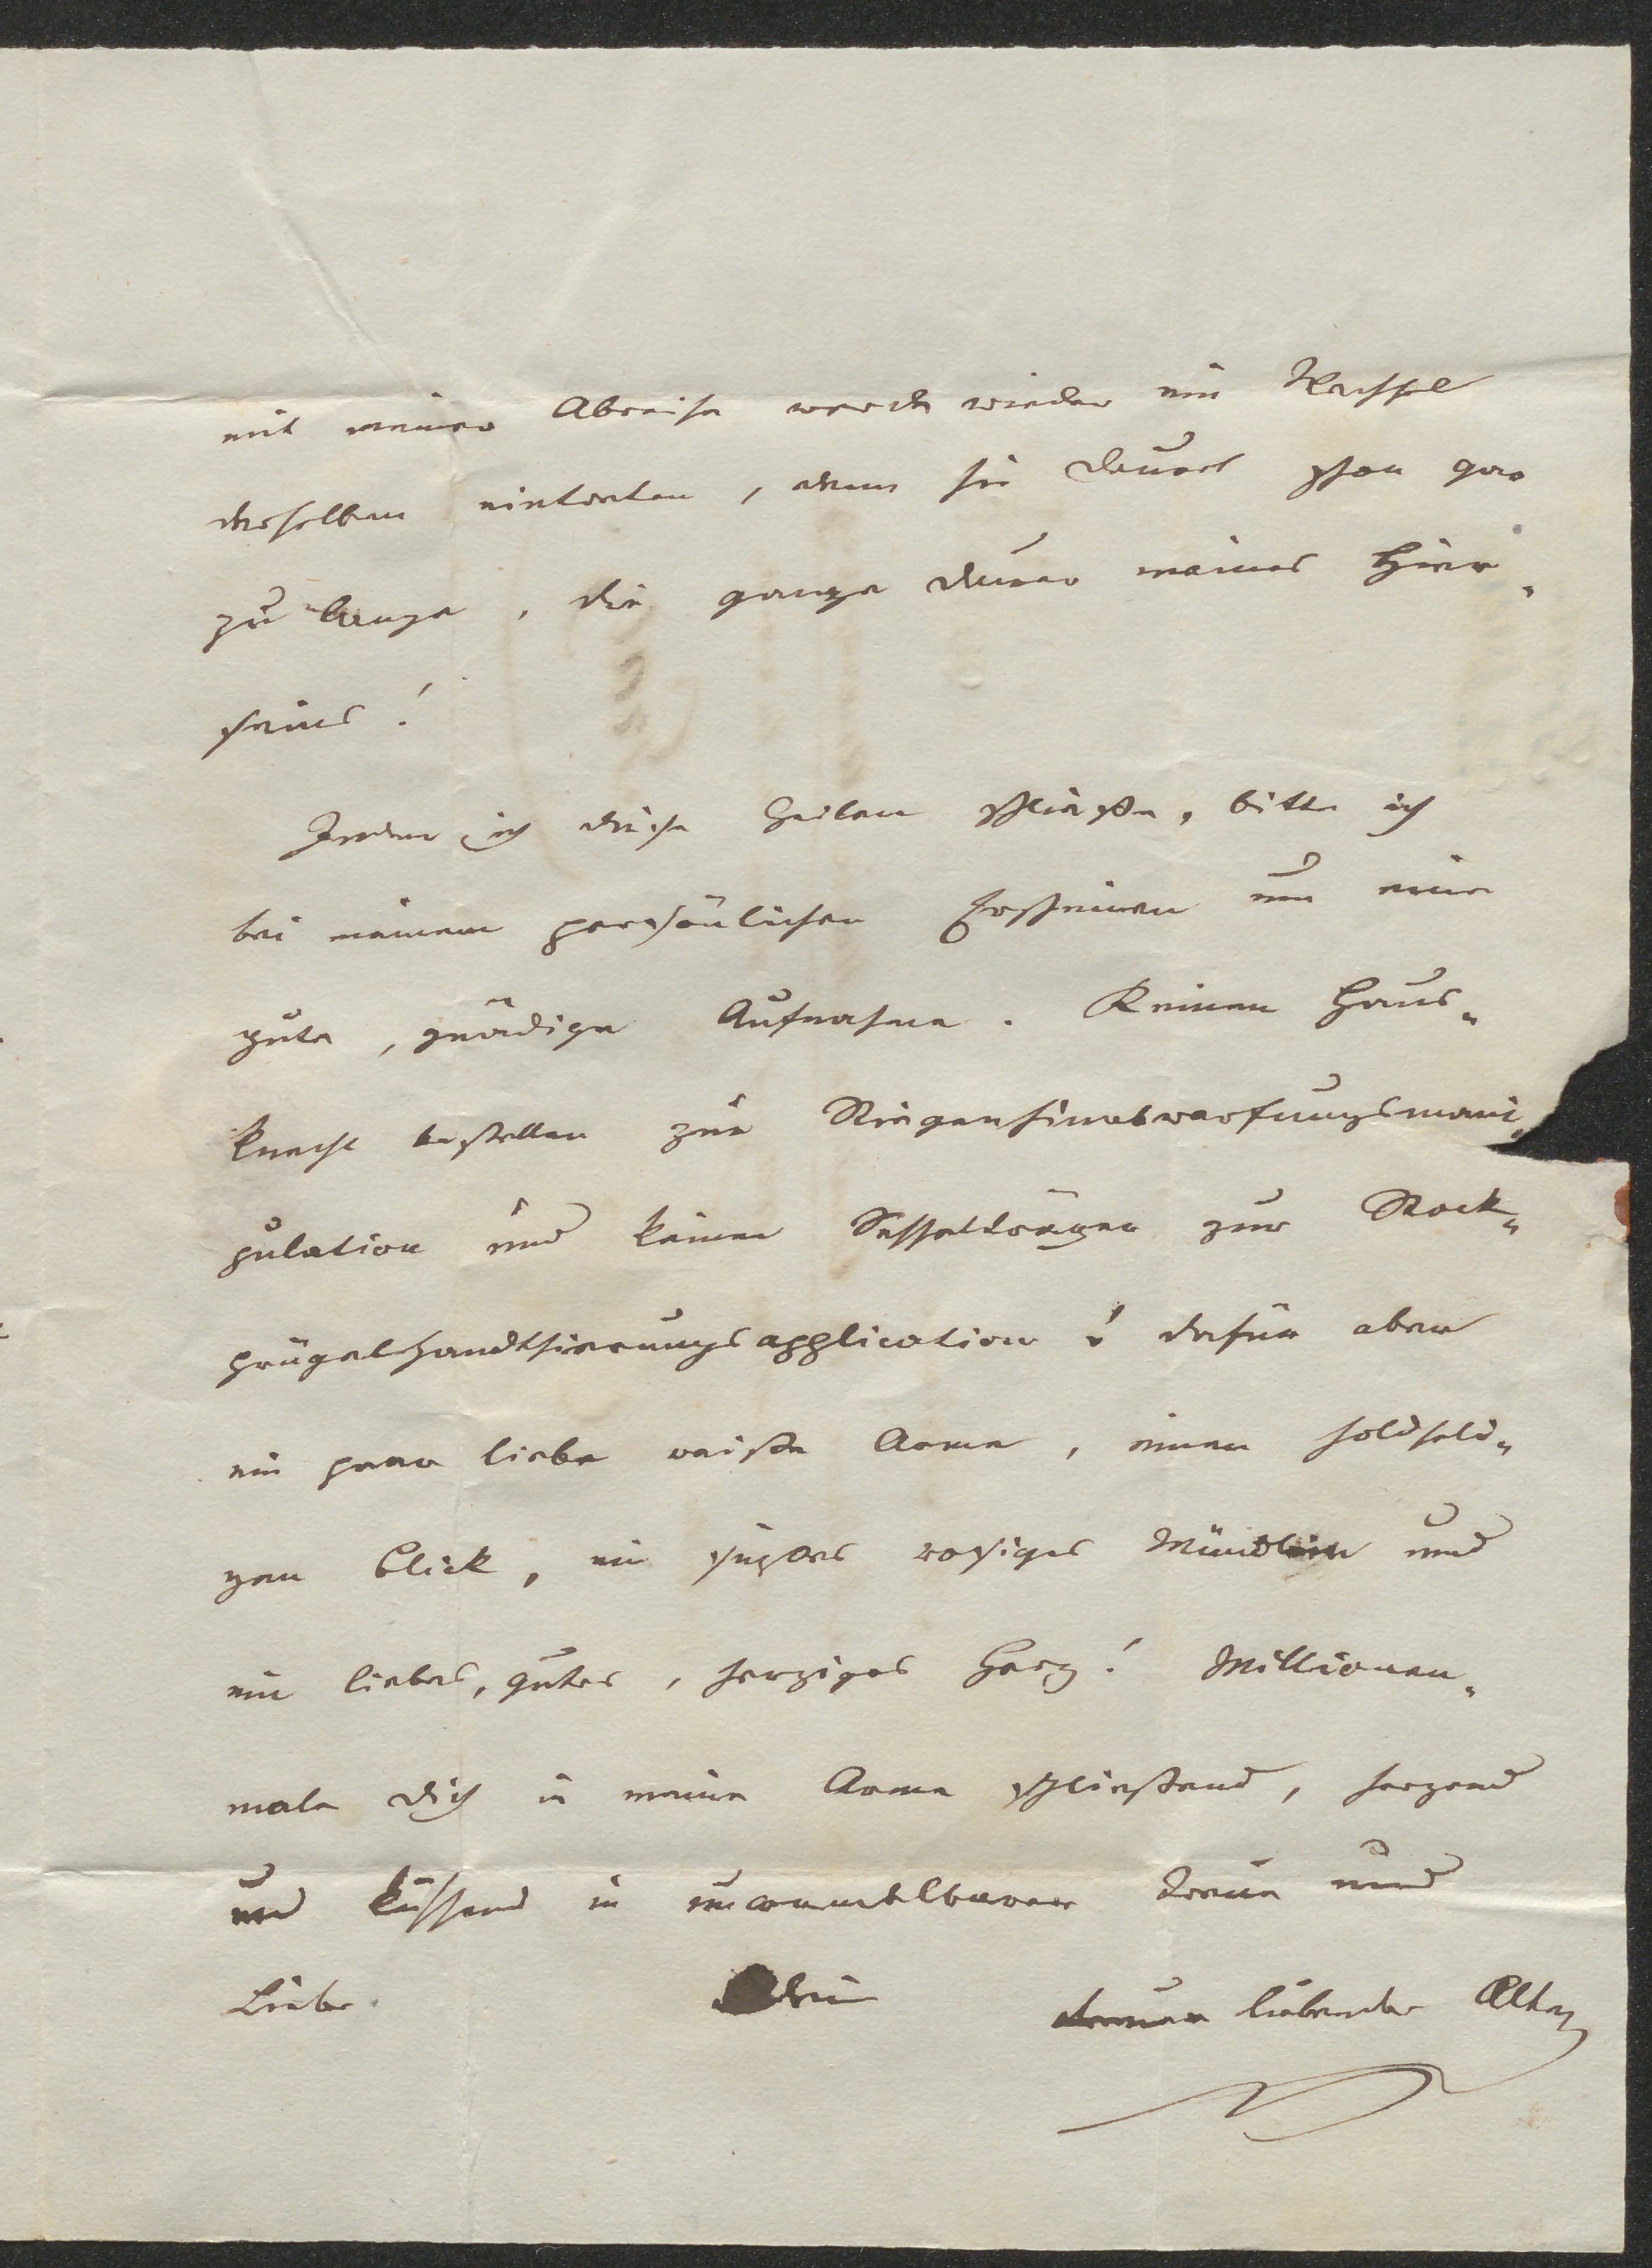 mit meiner Abreise werde wieder ein Wechsel
derselben eintreten, denn sie dauert schon gar
zu lange, die ganze Dauer meines Hier-
seins!
Indem ich diese Zeilen schließe, bitte ich
bei meinem persönlichen Erscheinen um eine
gute, gnädige Aufnahme. Keinen Haus-
knecht bestellen zur Stiegenhinabwerfungsmani-
pulation und keinen Sesselträger zur Stock-
prügelhandthierungsapplication! dafür aber
ein paar liebe weiße Arme, einen holdseli-
gen Blick, ein süßes rosiges Mündlein und
ein liebes, gutes, herziges Herz! Millionen-
male Dich in meine Arme schließend, herzend
und küssend in unwandelbarer Treue und
Liebe Dein treuer liebender Alter